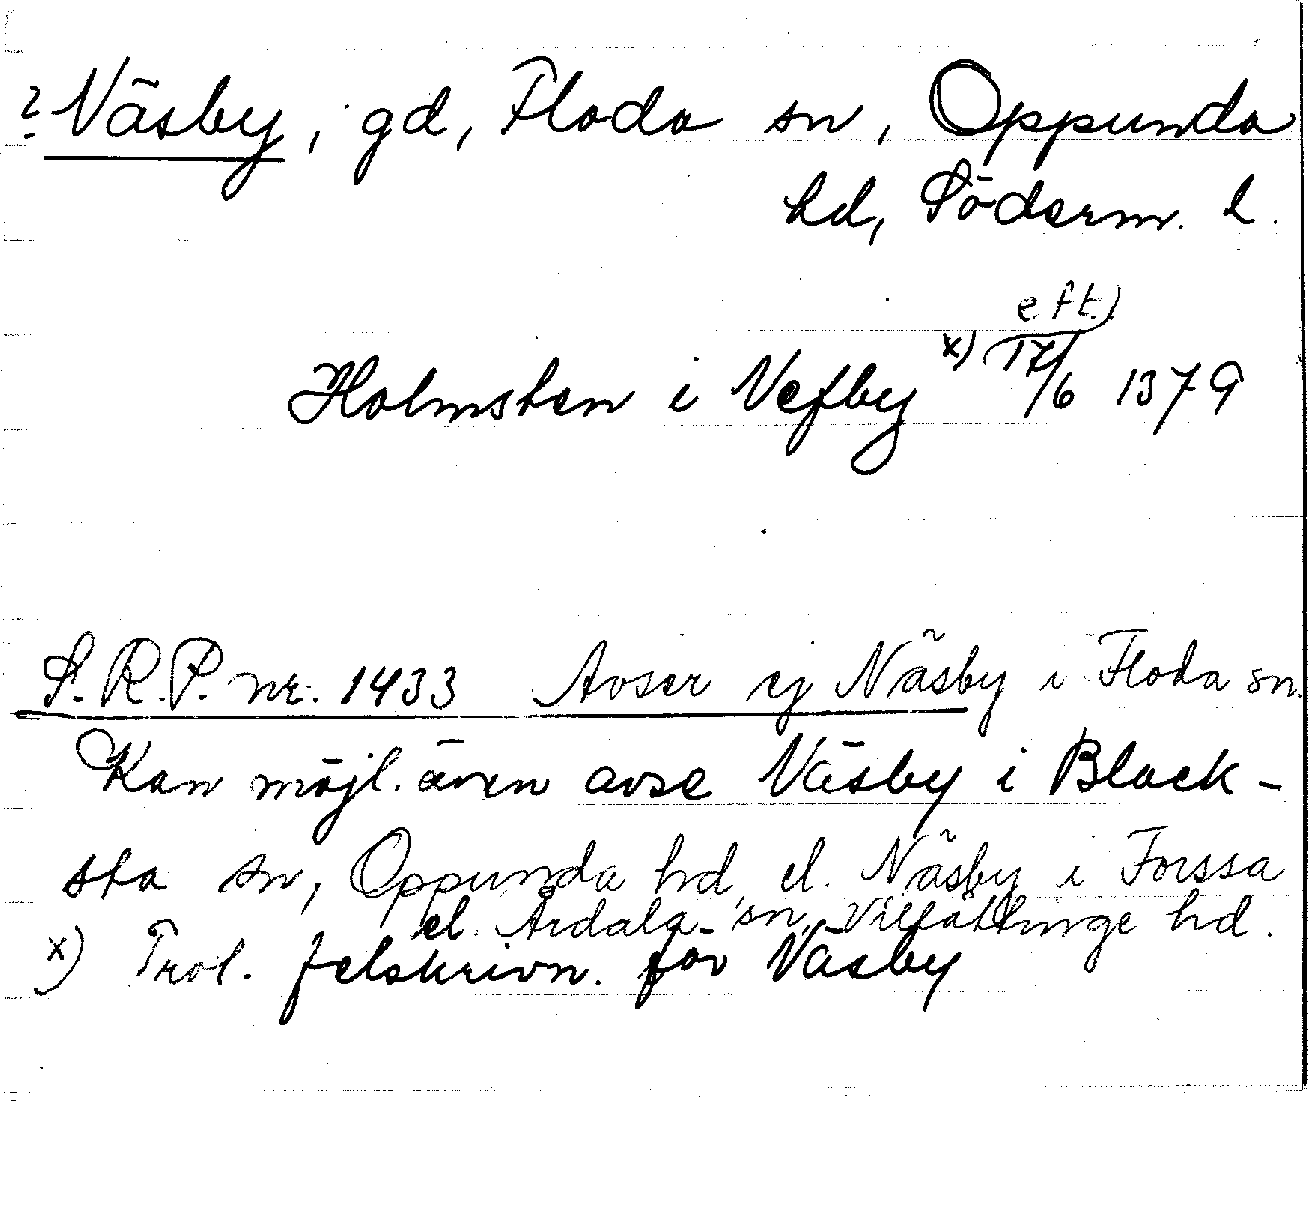 ? Näsby, gd, Floda sn, Oppunda
hd, Söderm. l.
eft)
Holmsten i Nefby x) (17/6 1379
S.R.P. nr. 1433 Avser ej Näsby i Floda sn.
Kan möjl. även avse Väsby i Black-
sta sn, Oppunda hd, el. Näsby i Forssa
el. Årdala sn, Villåttinge hd.
x) Trol. felskrivn. för Väsby